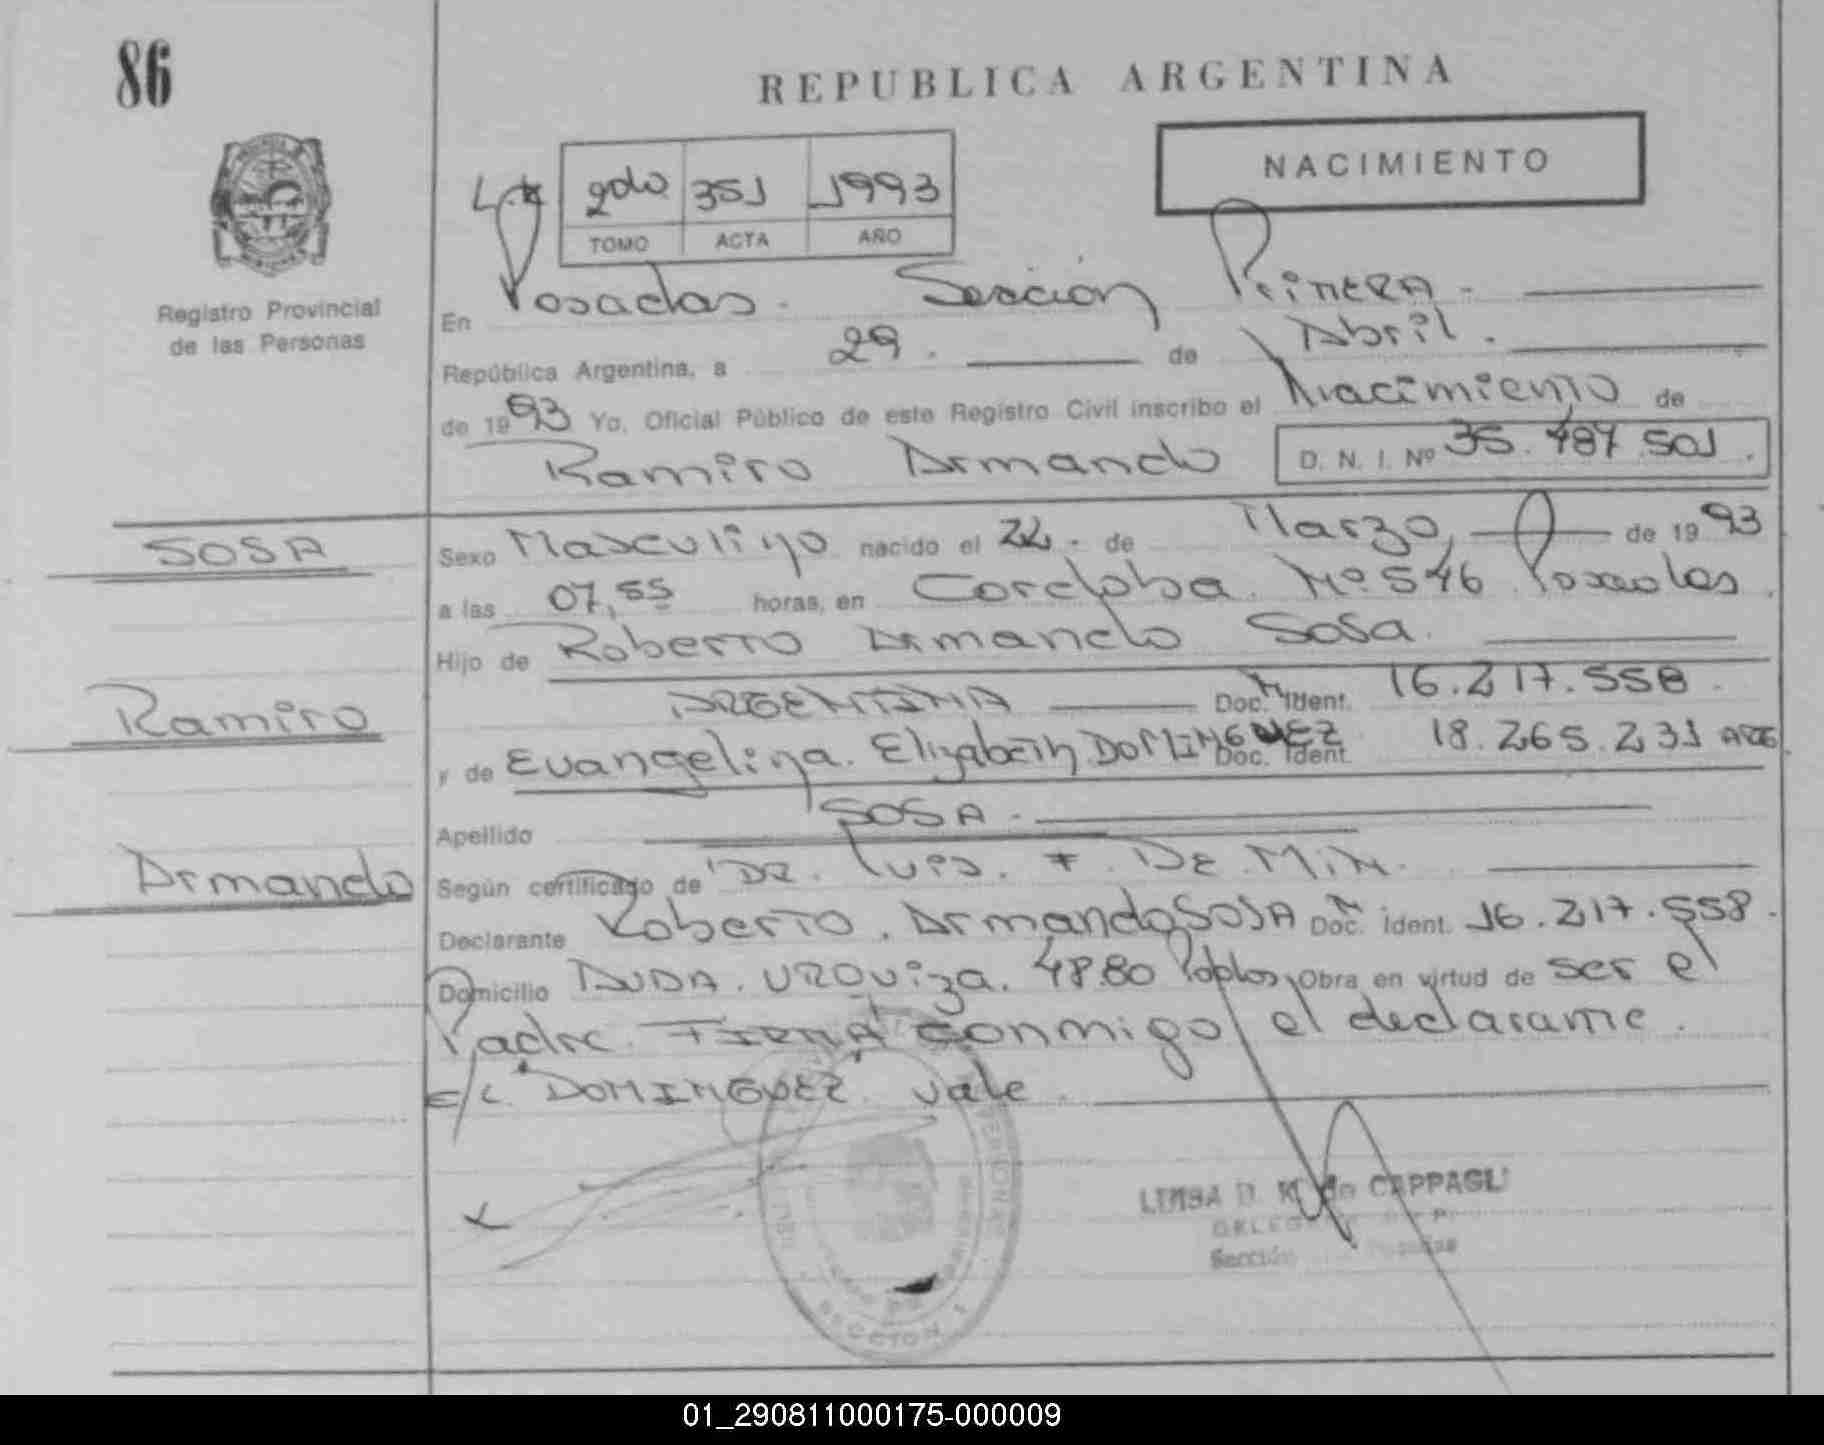 86
REPUBLICA ARGENTINA
NACIMIENTO
2do 351 1993
TOMO ACTA AÑO
Registro Provincial
de las Personas
En Posadas. Sección Primera.
República Argentina, a 29. de Abril.
de 1993 Yo, Oficial Público de este Registro Civil inscribo el Nacimiento de
Ramiro Armando D. N. I. Nº 35.487.501.
SOSA
Sexo Masculino nacido el 22. de Marzo, de 1993
a las 07,55 horas, en Cordoba. Nº 546 Posadas.
Hijo de Roberto Armando Sosa.
Ramiro
ARGENTINA Doc. Ident. 16.217.558.
y de Evangelina. Elizabeth. DOMINGUEZ Doc. Ident. 18.265.231 ARG
Apellido SOSA.
Armando
Según certificado de DR. Luis. F. DE.MIN.
Declarante Roberto. Armando SOSA Doc. Ident. 16.217.558.
Domicilio AVDA. URQuiza. 4880 Obra en virtud de ser el
Padre. FIRMA conmigo el declarante.
E/L. "DOMINGUEZ" vale.
D. M. de CAPPAGLI
Sección
SECCION 1
01_290811000175-000009